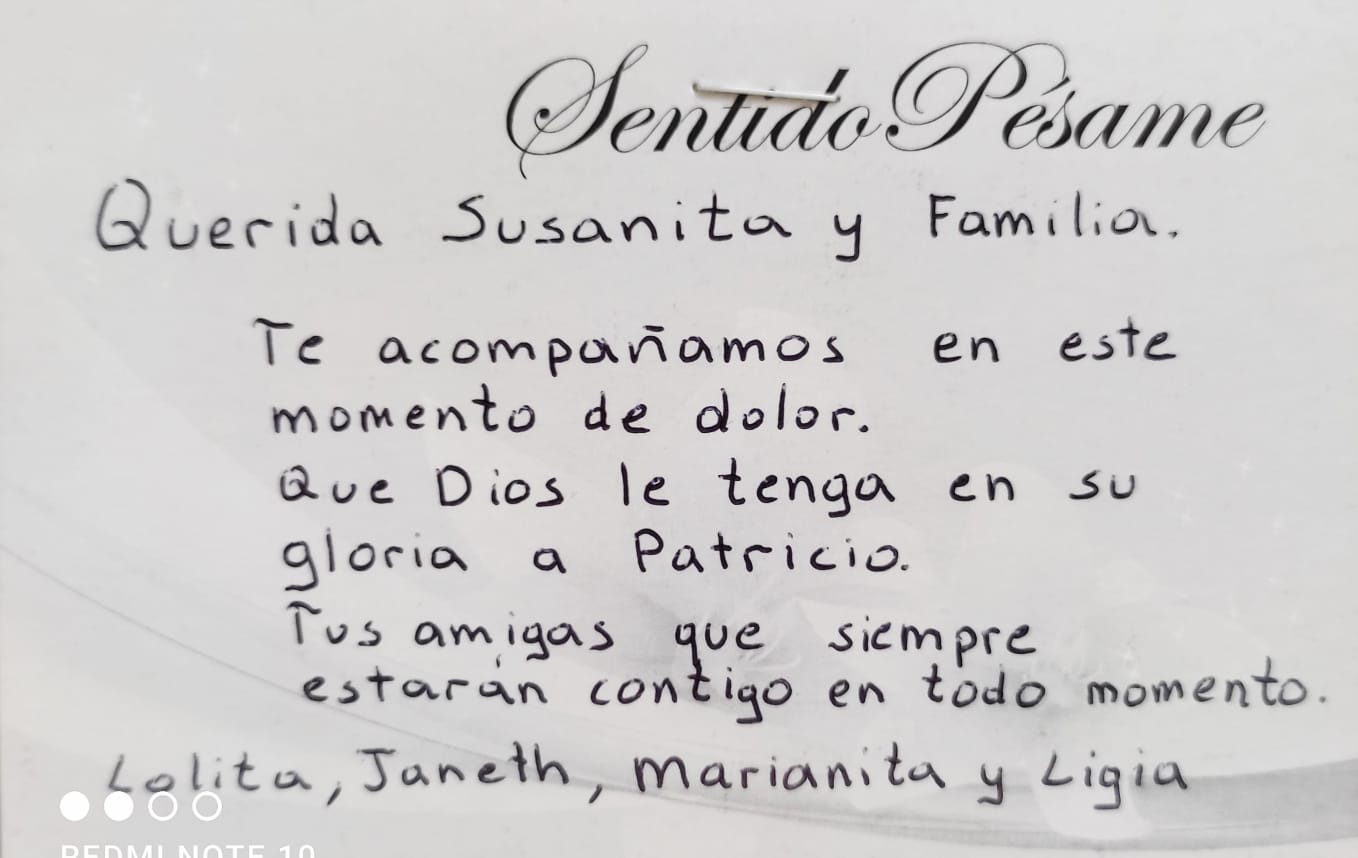 Sentido Pésame
Querida Susanita y Familia.
Te acompañamos en este
momento de dolor.
Que Dios le tenga en su
gloria a Patricio.
Tus amigas que siempre
estarán contigo en todo momento.
Lolita, Janeth, Marianita y Ligia
REDMI NOTE 10